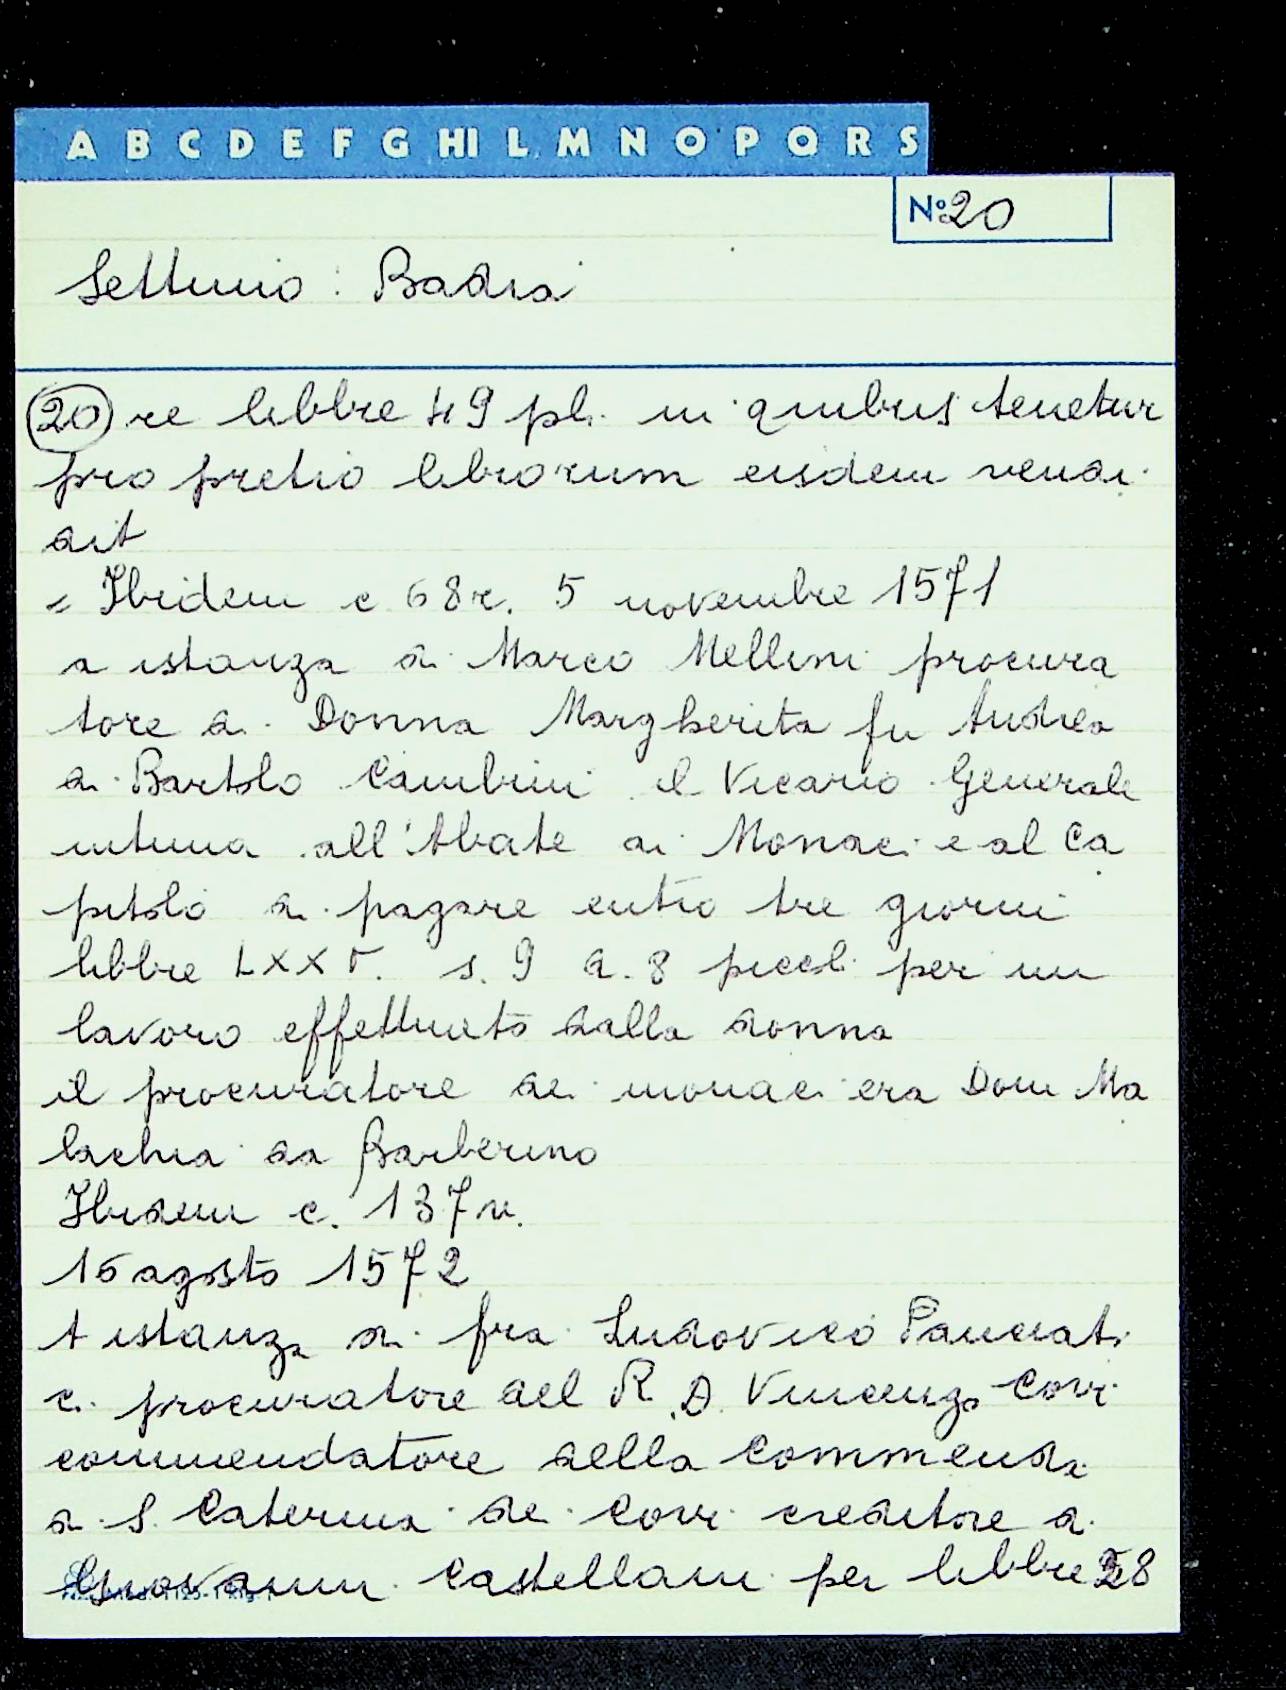 A B C D E F G HI L M N O P Q R S
Nº 20
Settimo : Badia
20 re libbre 49 pl. in quibus tenetur
pro pretio librorum eisdem vendi
dit
= Ibidem c 68r. 5 novembre 1571
a istanza di Marco Mellini procura
tore di Donna Margherita fu Andrea
di Bartolo Cambini il Vicario Generale
intima all'Abate ai Monaci e al Ca
pitolo di pagare entro tre giorni
libbre LXXV. s. 9 d. 8 piccoli per un
lavoro effettuato dalla donna
il procuratore dei monaci era Dom Ma
lachia da Barberino
Ibidem c. 137v.
16 agosto 1572
A istanza di fra Ludovico Panciati
ci procuratore del R. D. Vincenzo Covi
commendatore della Commenda
di S. Caterina de Covi creditore di
Giovanni Castellani per libbre 28